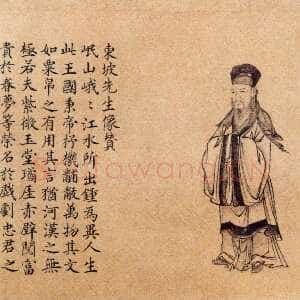 東坡先生像贊
岷山峨峨江水所出鍾為異人生
此王國秉帝杼機黼黻萬物其文
如粟帛之有用其言猶河漢之無
極若夫紫微玉堂瓊厓赤壁閱富
貴於春夢等榮名於戲劇忠君之